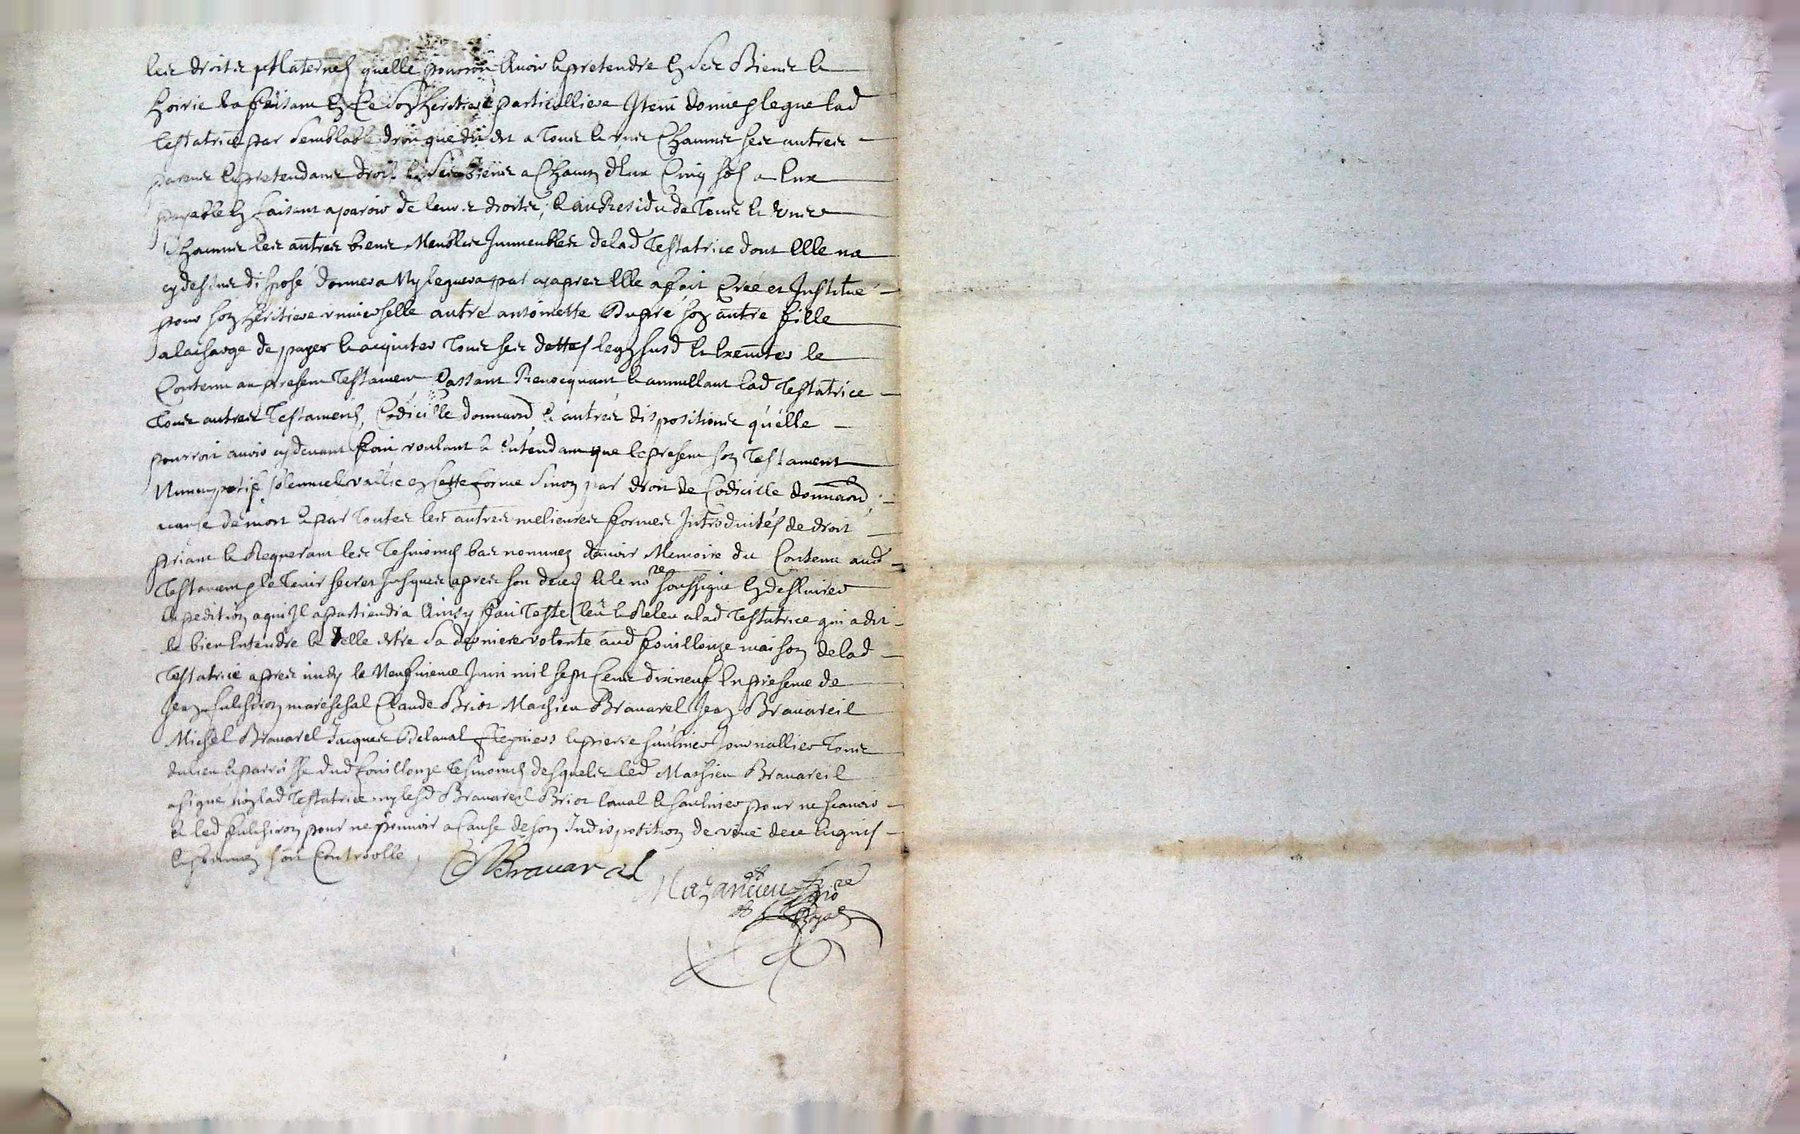 les droits Maternels quelle pourroit Avoir & pretendre En Ses Biens &
hoirie la faisant En Ce Son heritiere particulliere Item donne & legue lad
testatrice par Semblable droit que dit est a Tous & uns Chacuns ses autres
parens & pretendans droit En Ses biens a Chacun deux Cinq sols a Eux
payable En faisant aparoir de leurs droits, & au Residu de Tous & uns
Chacuns les autres biens Meubles Immeubles de lad Testatrice dont Elle na
cy dessus disposé donnera Ny leguera par cy apres Elle a fait Créé et Institué
pour son heritiere universelle autre antoinette Dupré son autre fille
a la charge de payer & acquiter Tous ses dettes legs susd & Executer le
Contenu au present Testament Cassant Revocquant & annullant lad Testatrice
Tous autres Testaments, Codicille donnaond & autres dispositions quelle
pourroit avoir cy devant fait voulant & Entendant que le present son Testament
Nuncupatif solennel vallie en Cette forme Sinon par droit de Codicille donnaond
a cause de mort & par Toutes les autres melieures formes Introduites de droit
priant & Requerant les Tesmoins bas nommez davoir Memoire du Contenu aud
Testament & le Tenir secret jusques apres son deces & le nore soussigné En desliurer
Expedition a qui Il apartiendra Ainsy fait Testé leu & Releu a lad Testatrice qui a dit
le bien Entendre & Telle estre Sa derniere volonté aud fouillouze maison de lad
Testatrice apres midy le Neufvieme Juin mil sept Cent dixneuf En presence de
Jean fulchiron mareschal Claude Briot Mathieu Bravarel Jean Bravareil
Michel Bravarel Jacques Delaval & pierre saulnier Journallier Tous
du lieu & parroisse dud fouillouze Tesmoins desquels led Mathieu Bravareil
a signé non lad Testatrice ny lesd Bravareil Briot laval & saulnier pour ne scavoir
& led fulchiron pour ne pouvoir a Cause de son Indisposition de vüe de ce Enquis
& sommez soit Controollé,
MBravarel
Nazarieu
nore
Royal